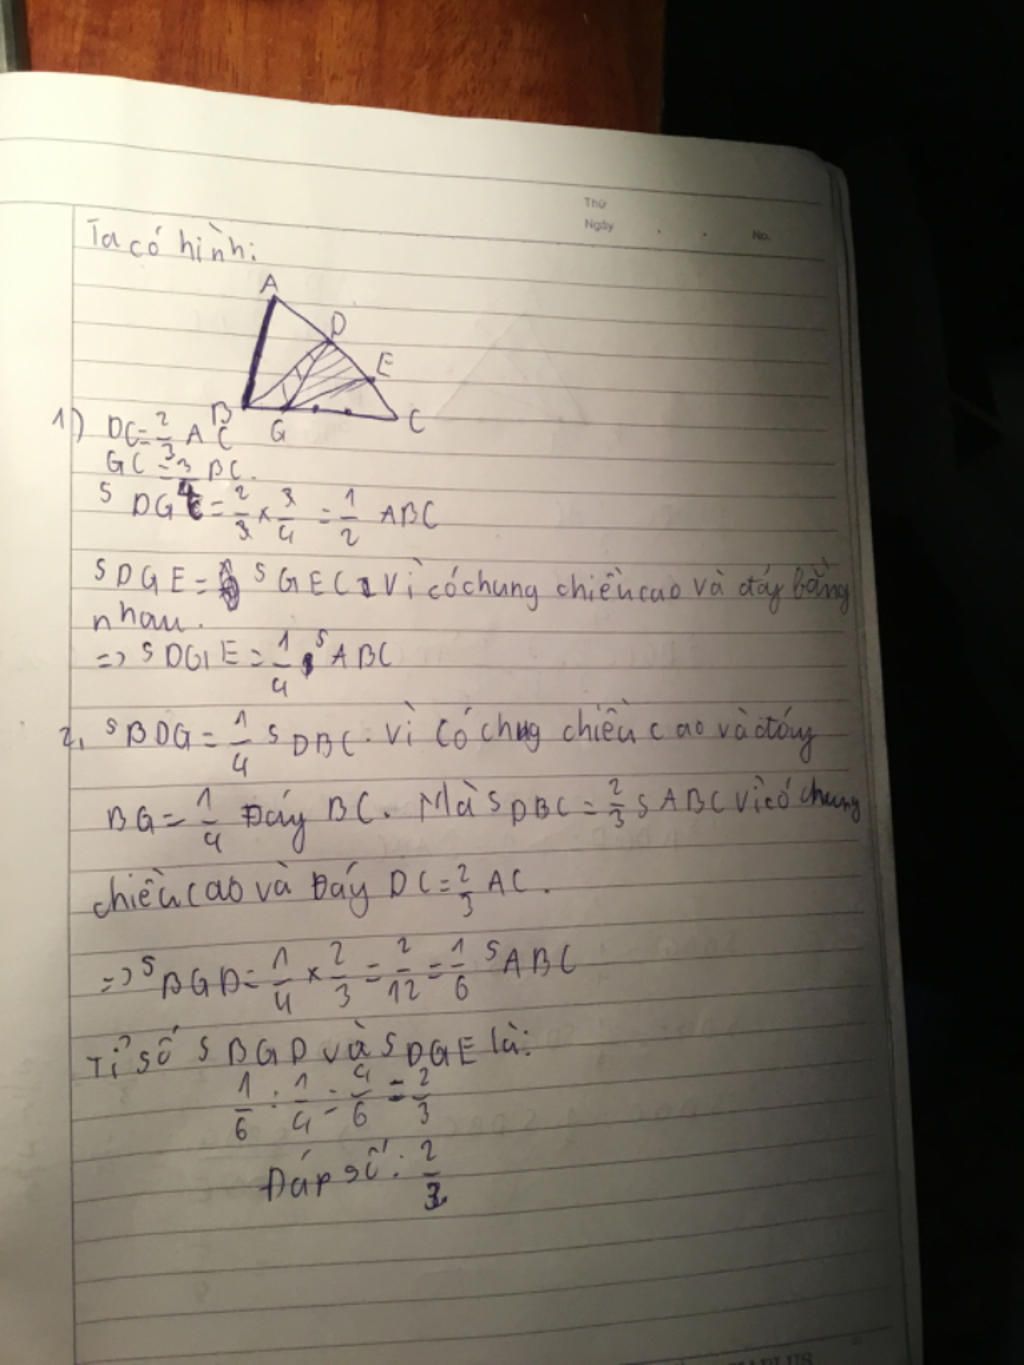 Thứ
Ngày . . No.
Ta có hình:
A
D
E
B
G
C
1) DC = 2/3 AC
GC = 3/4 BC.
S DGC = 2/3 x 3/4 = 1/2 ABC
S DGE = S GEC Vì có chung chiều cao và đáy bằng
nhau.
=> S DGE = 1/4 S ABC
2, S BDG = 1/4 S DBC. Vì có chung chiều cao và đáy
BG = 1/4 Đáy BC. Mà S DBC = 2/3 S ABC Vì có chung
chiều cao và Đáy DC = 2/3 AC.
=> S BGD = 1/4 x 2/3 = 2/12 = 1/6 S ABC
Tỉ số S BGD và S DGE là:
1/6 : 1/4 = 4/6 = 2/3
Đáp số: 2/3